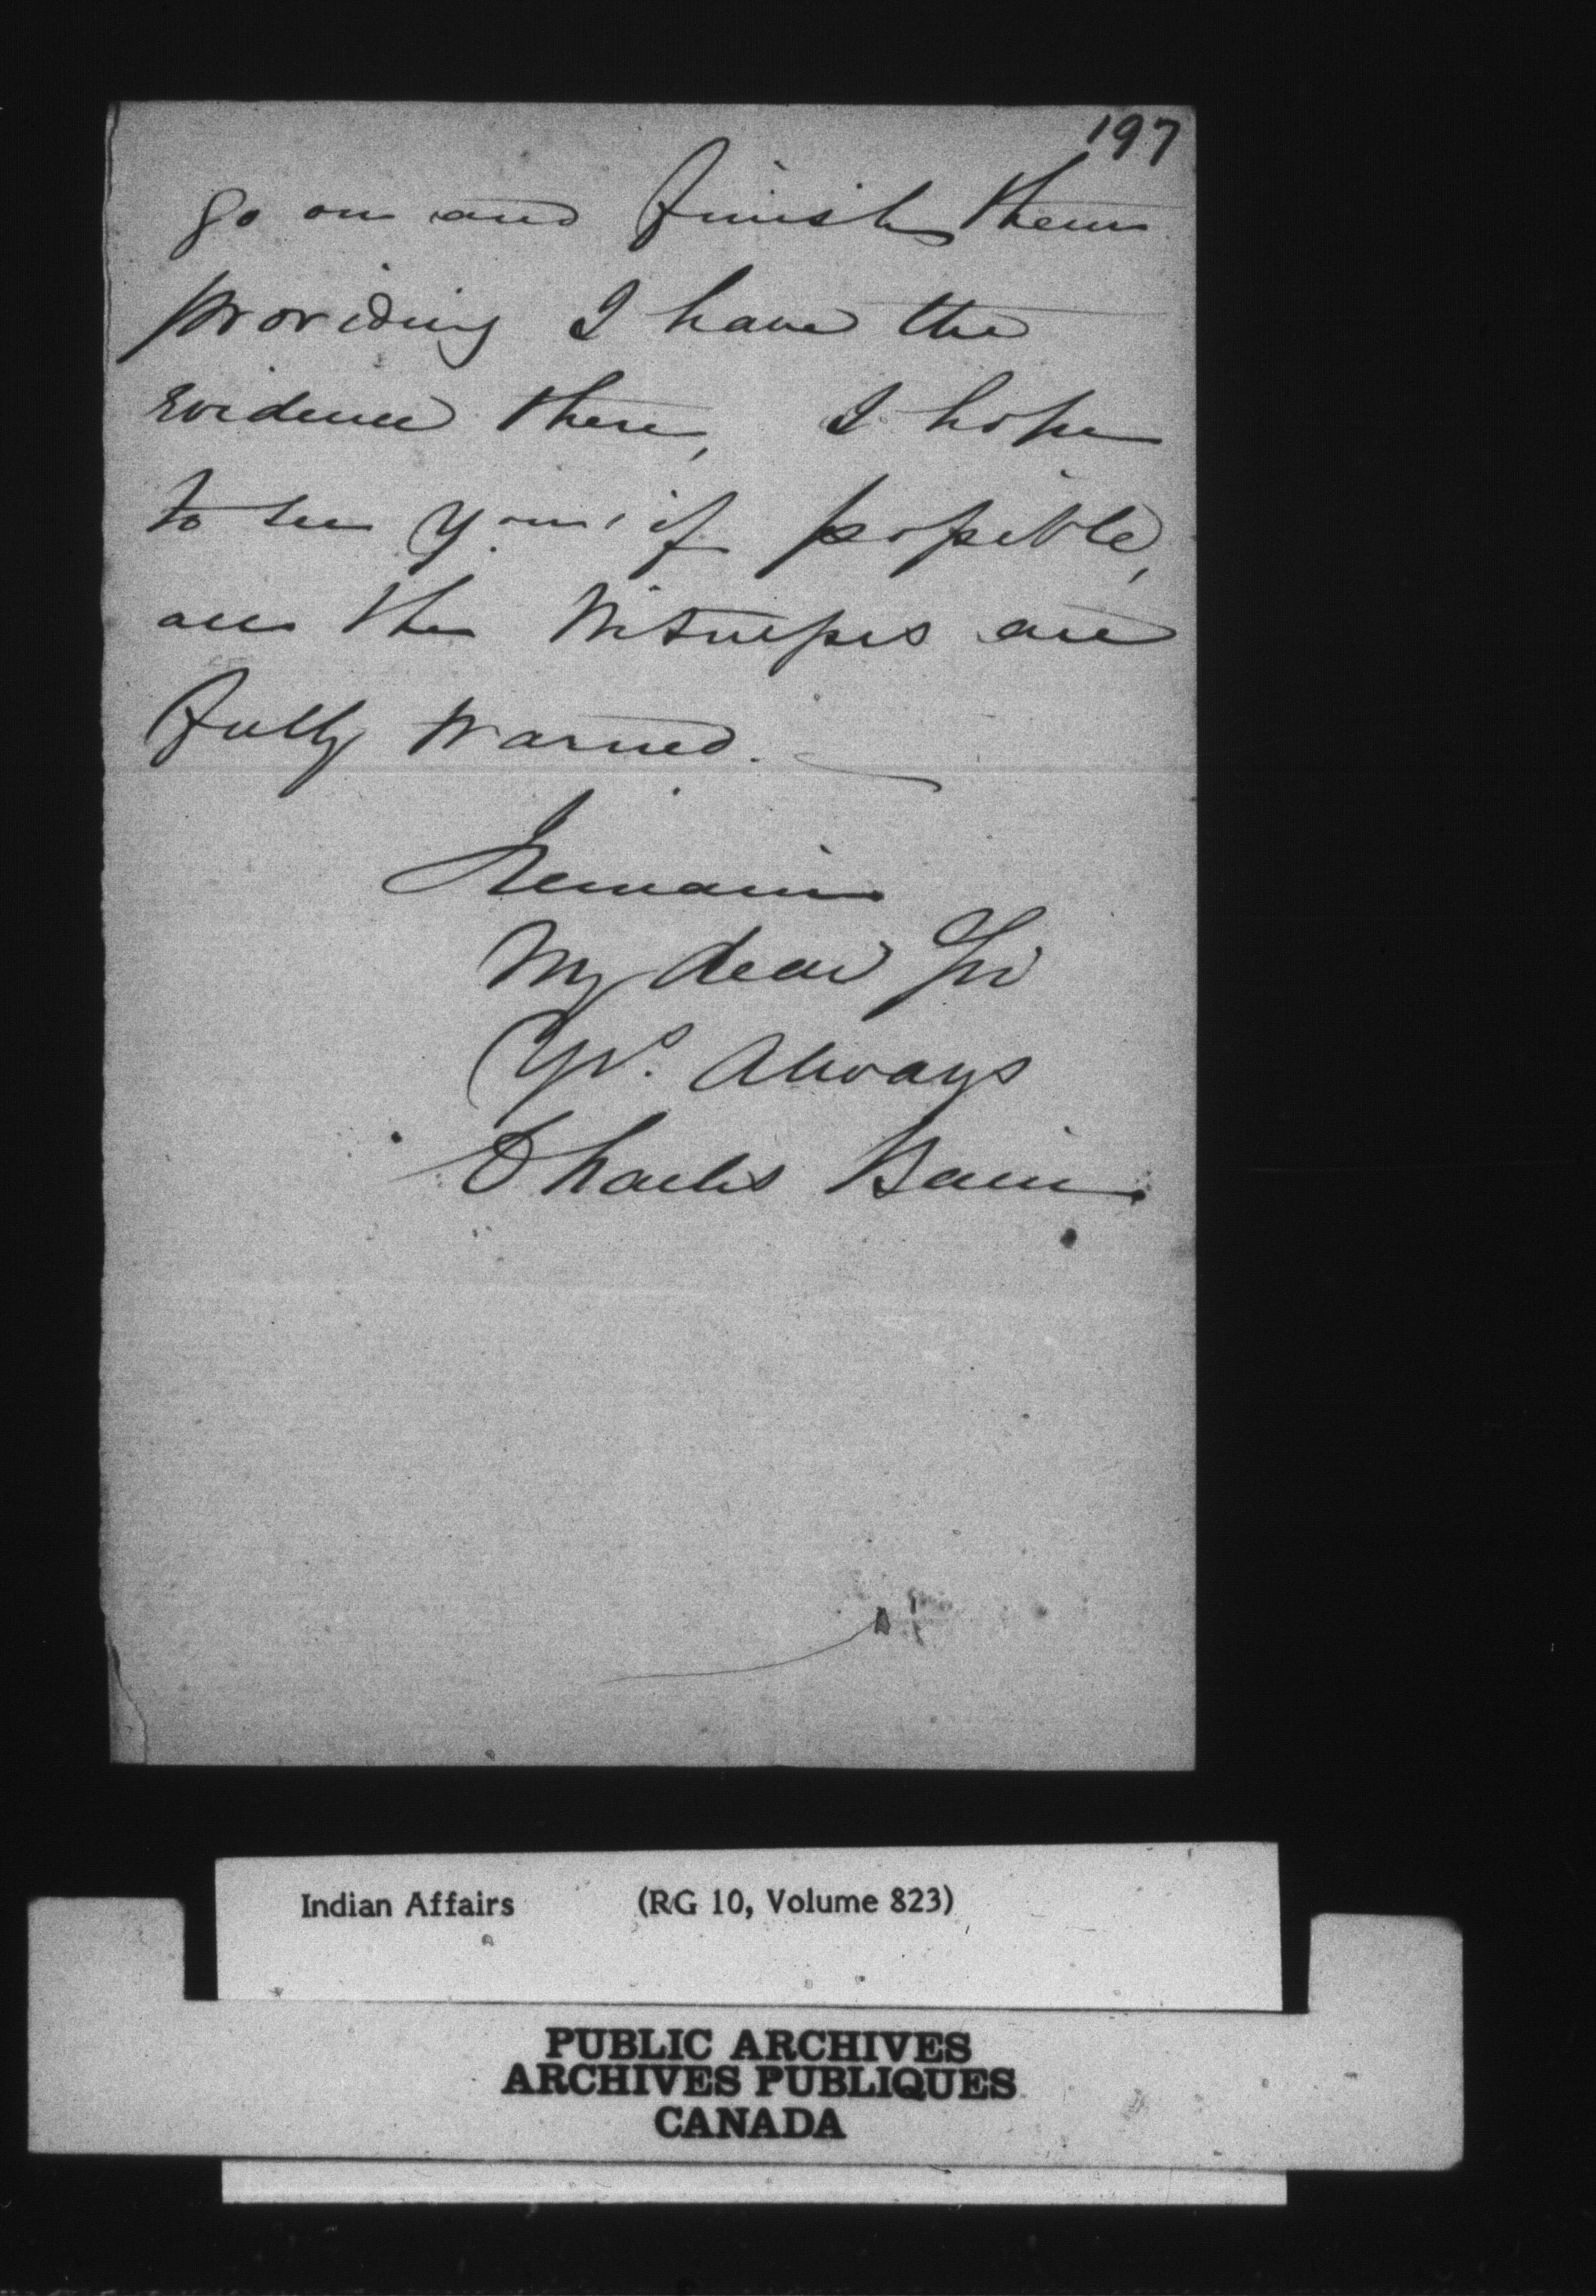 197
go on and finish them
providing I have the
Evidence there, I hope
to see you, if possible,
all the Witnesses are
fully Warned.
I remain
My dear Sir
Yrs. Always
Charles Bain
Indian Affairs (RG 10, Volume 823)
PUBLIC ARCHIVES
ARCHIVES PUBLIQUES
CANADA